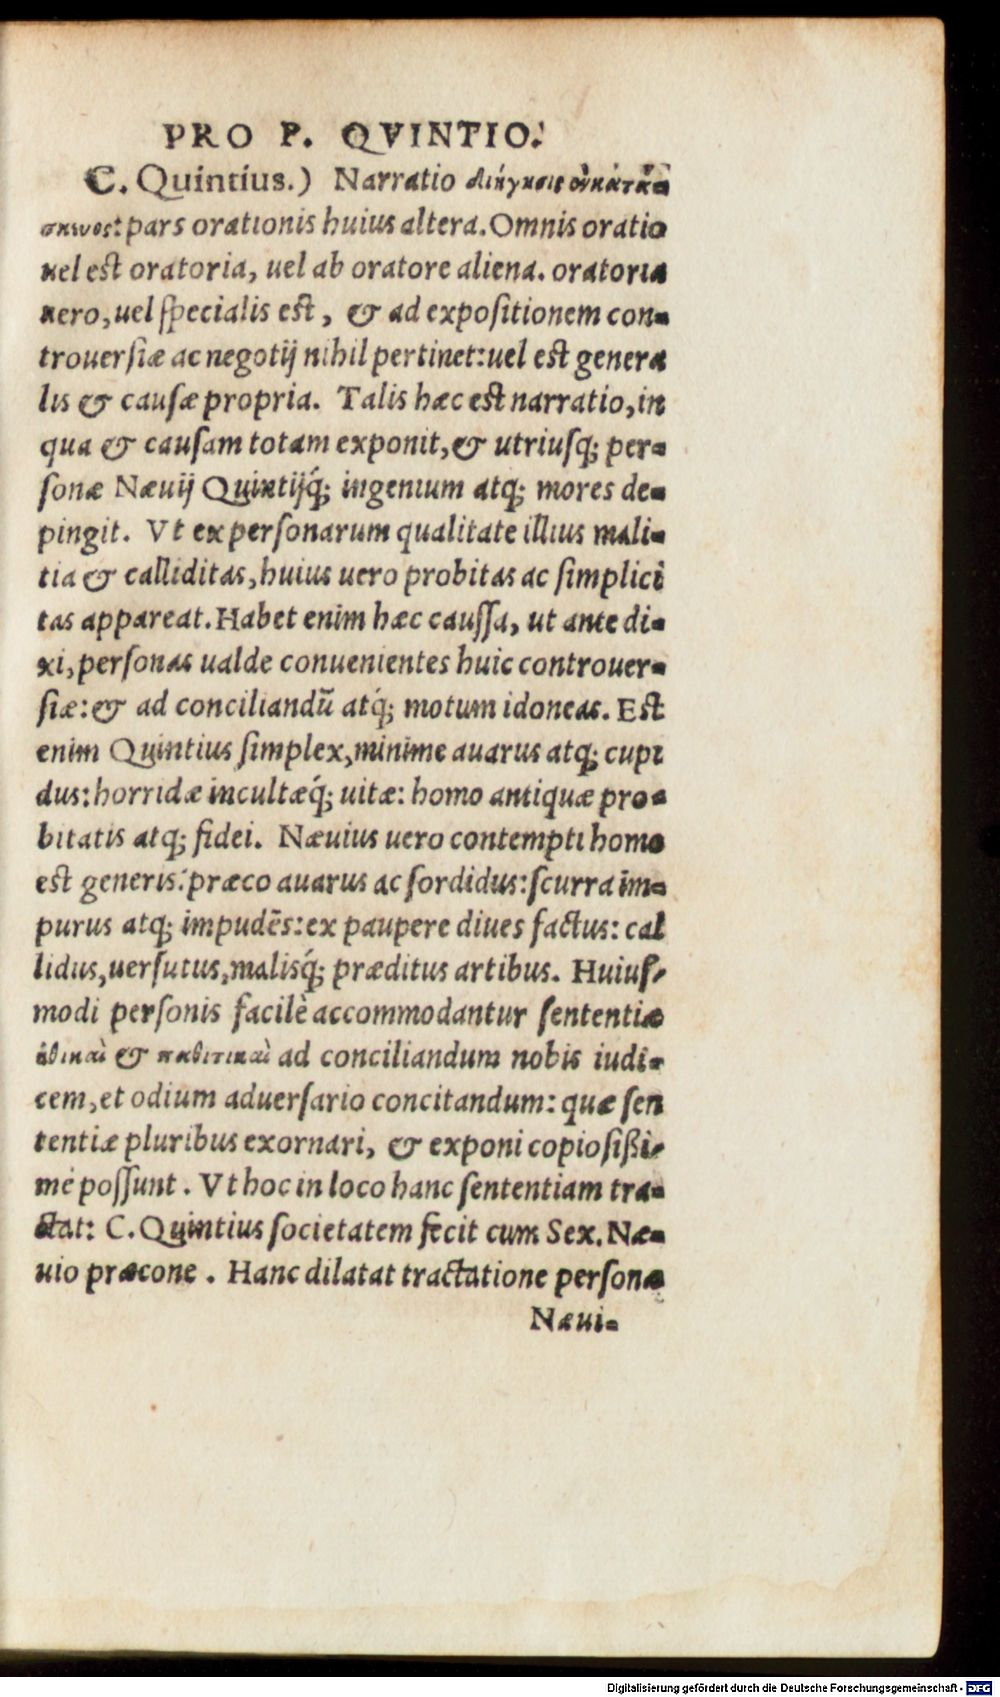 PRO P. QVINTIO.
C. Quintius.) Narratio διήγησις
pars orationis huius altera. Omnis oratio
uel est oratoria, uel ab oratore aliena. oratoria
uero, uel specialis est, & ad expositionem con-
trouersiæ ac negotij nihil pertinet: uel est genera
lis & causæ propria. Talis hæc est narratio, in
qua & causam totam exponit, & utriusq; per-
sonæ Næuij Quintijq́; ingenium atq; mores de-
pingit. Vt ex personarum qualitate illius mali-
tia & calliditas, huius uero probitas ac simplici
tas appareat. Habet enim hæc caussa, ut ante di-
xi, personas ualde conuenientes huic controuer-
siæ: & ad conciliandū atq́; motum idoneas. Est
enim Quintius simplex, minime auarus atq; cupi
dus: horridæ incultæq́; uitæ: homo antiquæ pro-
bitatis atq; fidei. Næuius uero contempti homo
est generis: præco auarus ac sordidus: scurra im-
purus atq; impudēs: ex paupere diues factus: cal
lidus, uersutus, malisq́; præditus artibus. Huius-
modi personis facilè accommodantur sententiæ
ἠθικαὶ & παθητικαὶ ad conciliandum nobis iudi-
cem, et odium aduersario concitandum: quæ sen
tentiæ pluribus exornari, & exponi copiosißi-
mè possunt. Vt hoc in loco hanc sententiam tra-
ctat: C. Quintius societatem fecit cum Sex. Næ-
uio præcone. Hanc dilatat tractatione personæ
Næui-
Digitalisierung gefördert durch die Deutsche Forschungsgemeinschaft - DFG